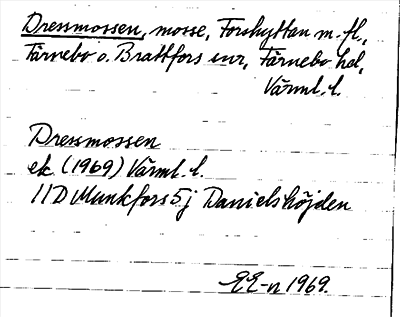 Dressmossen, mosse, Forshyttan m. fl.,
Färnebo o. Brattfors snr, Färnebo hd,
Värml. l.
Dressmossen
ek (1969) Värml. l.
11D Munkfors 5j Danielshöjden
EE-n 1969.